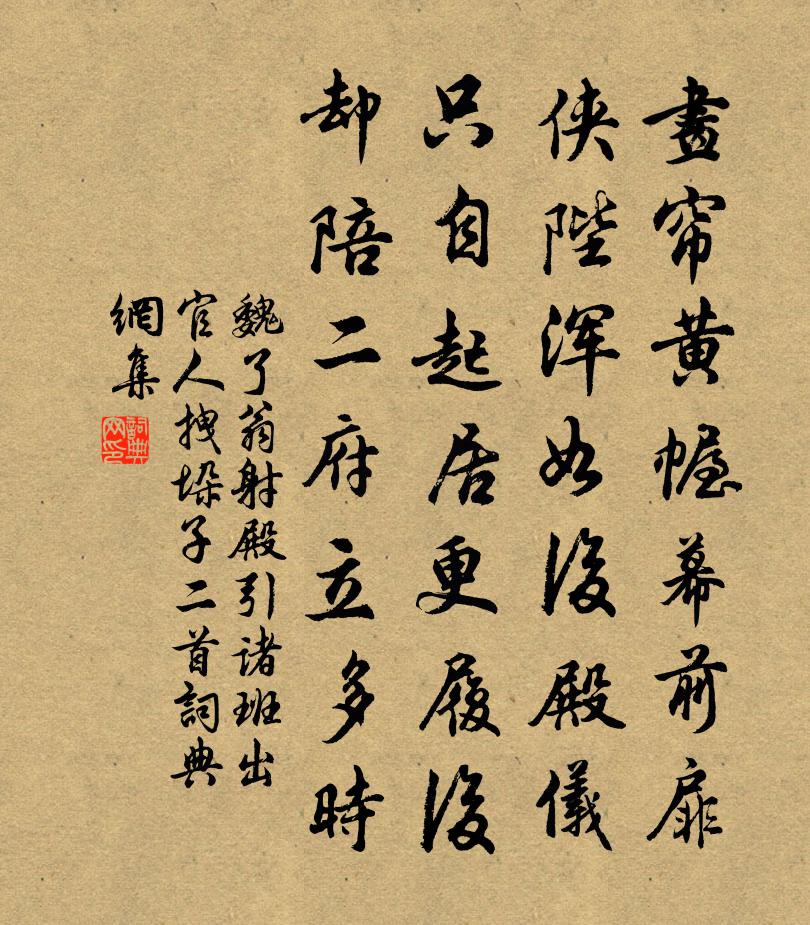 畫帘黃幄幕前扉
俠陛渾如後殿儀
只自起居更履後
却陪二府立多時
魏了翁射殿引諸班出
官人拽垛子二首詞典
網集
詞典
网印